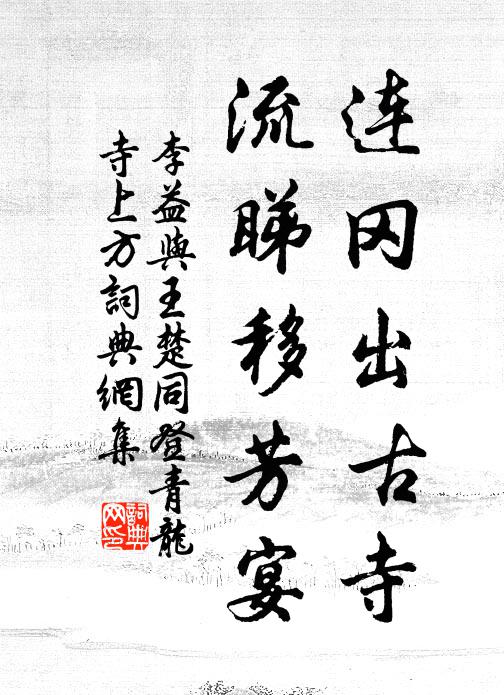 连冈出古寺
流睇移芳宴
李益與王楚同登青龍
寺上方詞典網集
詞典
网印